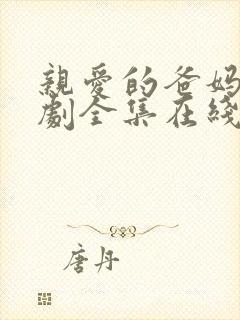 親愛的爸媽
劇全集在綫
唐丹